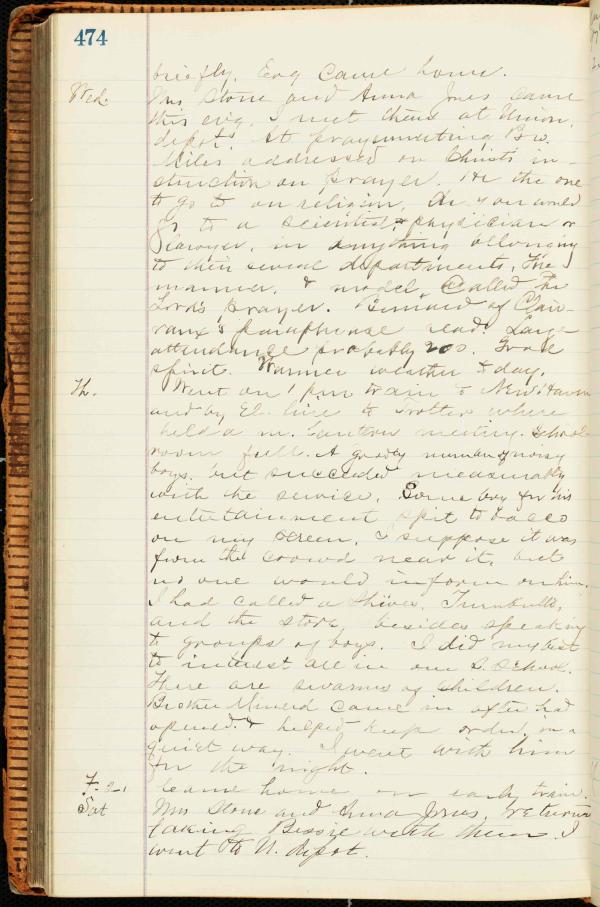 474
briefly. Evg came home.
Wed. Mrs Stone and Anna Jones came
this evg. I met them at Union
depot. At praymeeting Bro.
Miles addressed on Christs in-
struction on prayer. He the one
to go to on religion, As you would
go to a scientist, physician or
lawyer, in anything belonging
to their several departments. The
manner, & model, called the
Lord's prayer. Bernard of Clair-
vaux's paraphrase read. Large
attendance probably 200. Good
spirit. Warmer weather to day.
Th. Went on 1 pm train to New Haven
and by El. line to where
held a m. lantern meeting. School
room full. A goodly number of noisy
boys. but succeeded measurably
with the service. Some boy for his
entertainment spit tobacco
on my screen, I suppose it was
from the crowd near it, but
no one would inform on him.
I had called a Shives, Turnbulls,
and the store, besides speaking
to groups of boys. I did my best
to interest all in our S. School.
There are swarms of children.
Brother Minerd came in after had
opened & helped keep order in a
quiet way. I went with him
for the night.
F. 21 Came home on early train.
Sat Mrs Stone and Anna Jones, returned
taking Bessie with them. I
went to U. depot.